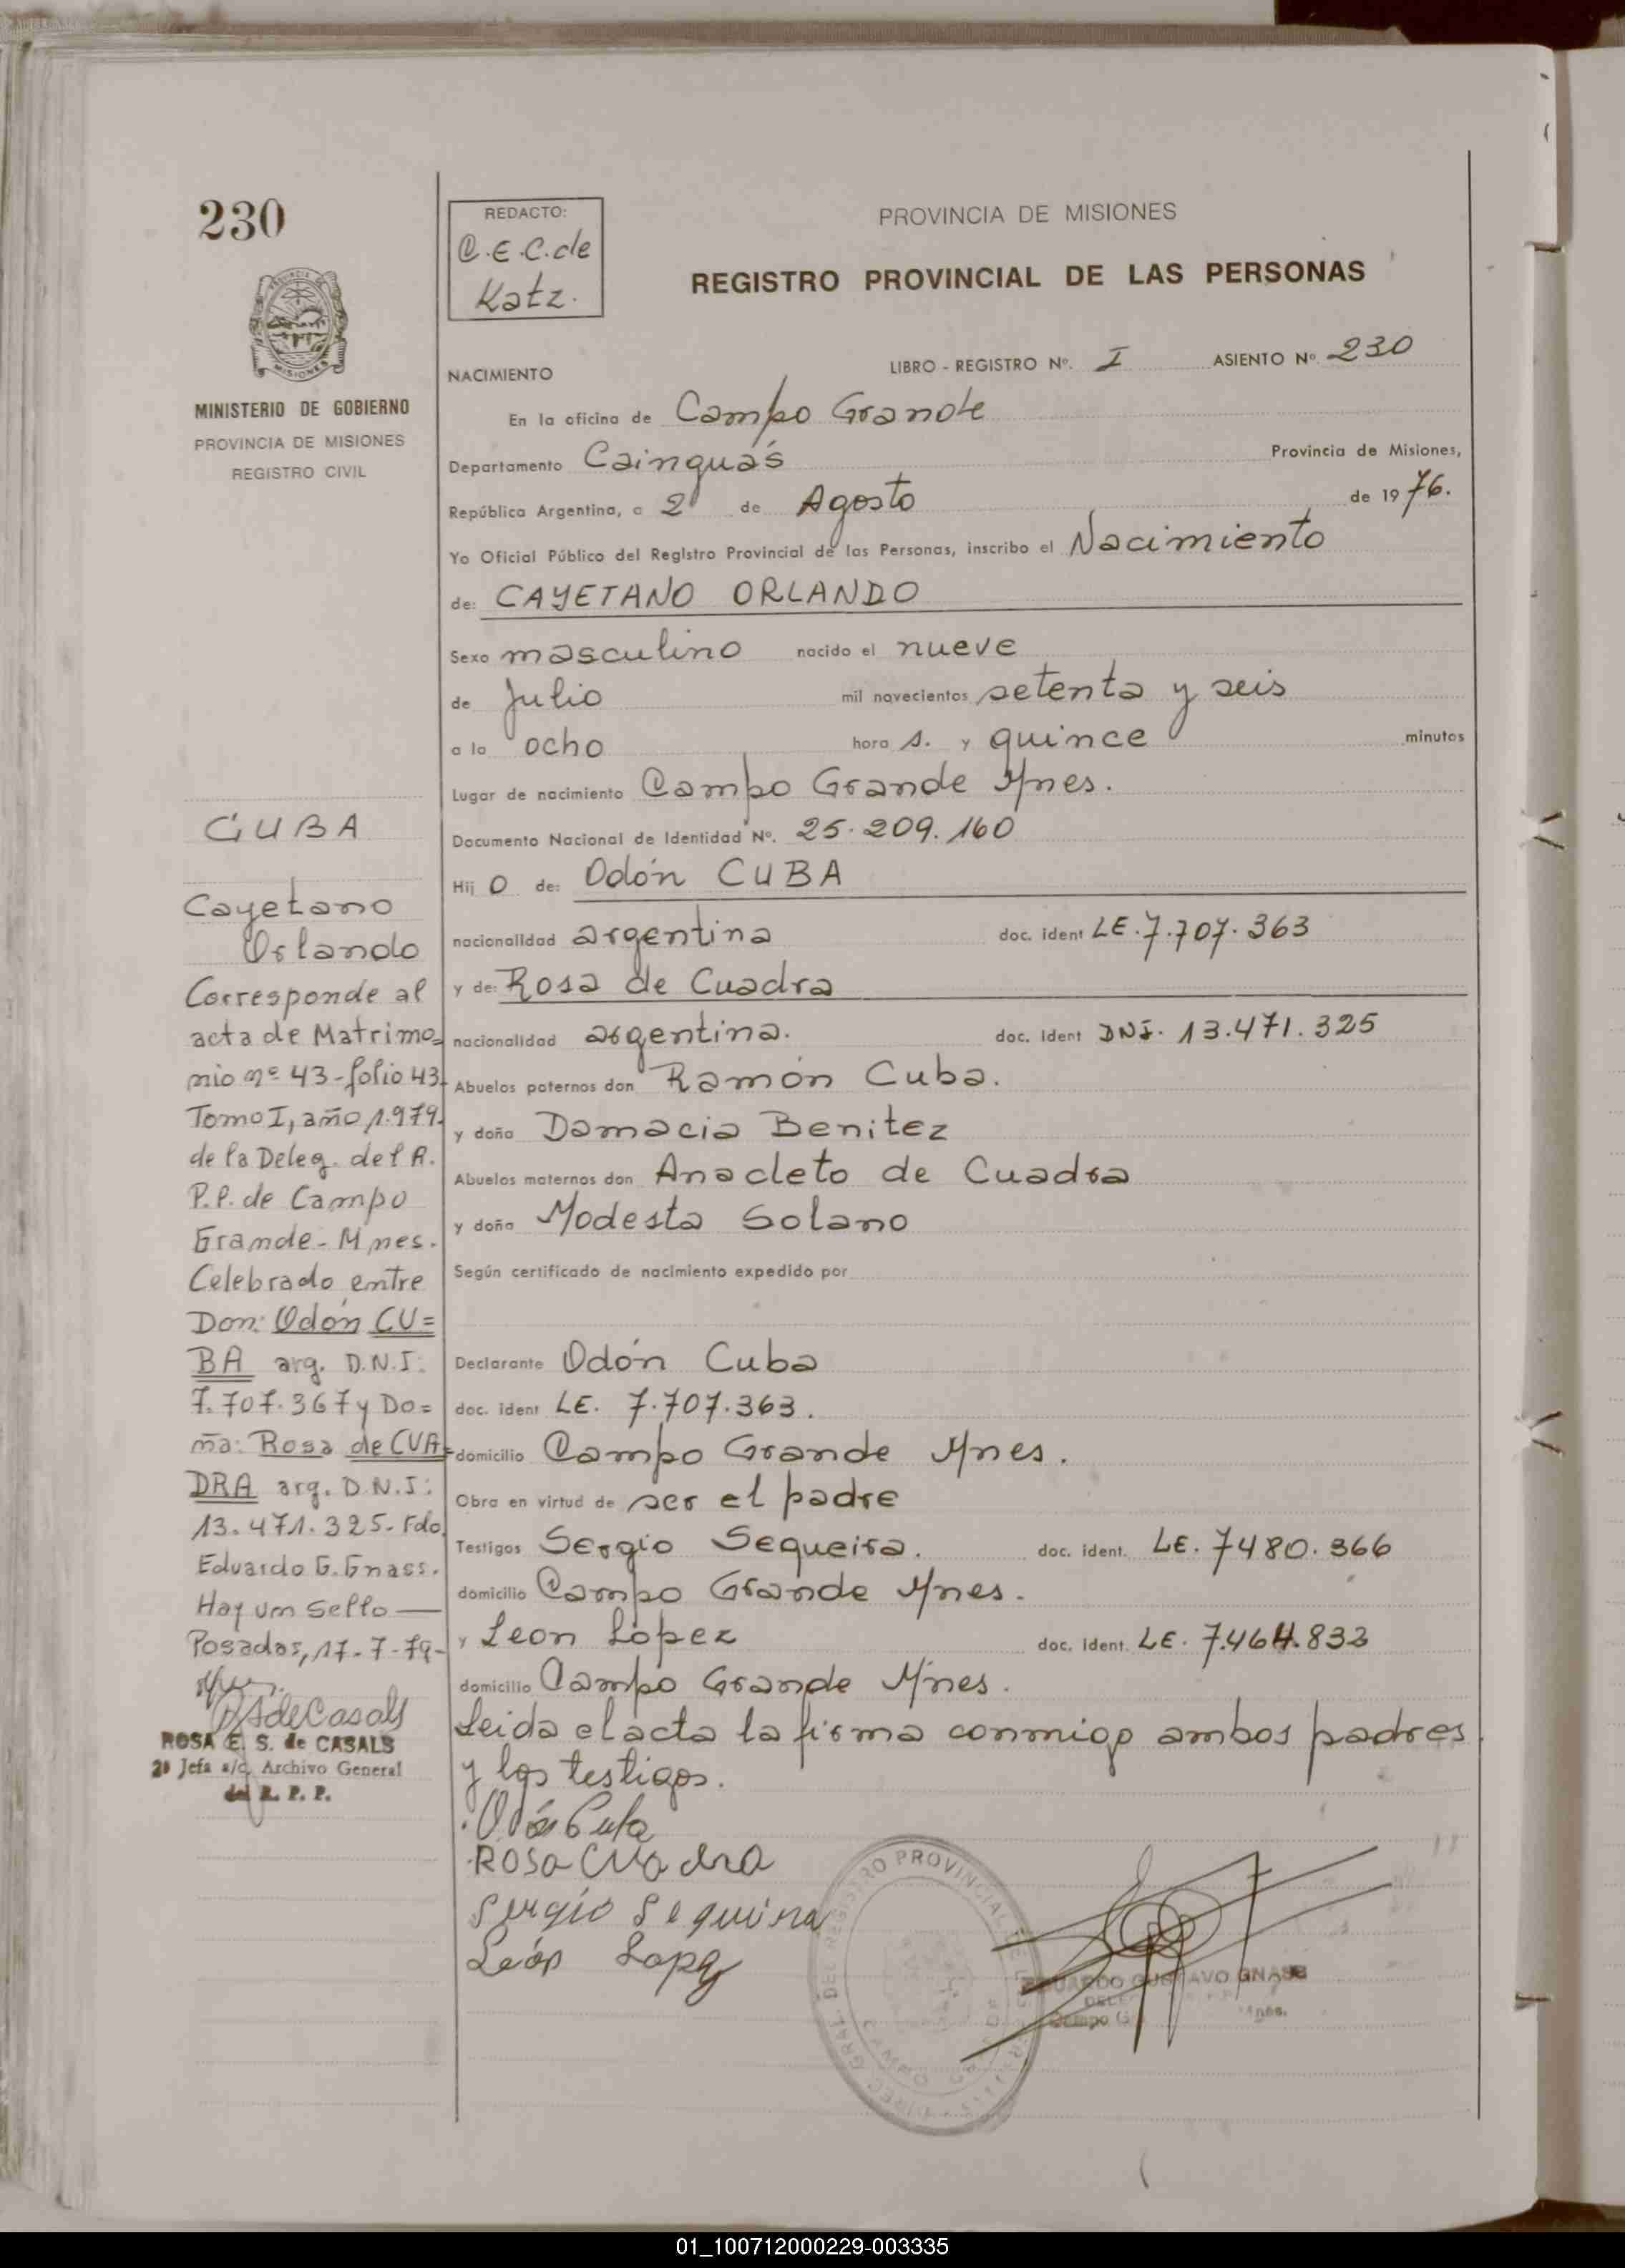 230
PROVINCIA DE MISIONES
MINISTERIO DE GOBIERNO
PROVINCIA DE MISIONES
REGISTRO CIVIL
CUBA
Cayetano
Orlando
Corresponde al
acta de Matrimo=
nio nº 43-folio 43-
Tomo I, año 1.979.
de la Deleg. del R.
P.P. de Campo
Grande-Mnes.
Celebrado entre
Don: Odón CU=
BA arg. D.N.I:
7.707.367 y Do=
ña: Rosa de CUA=
DRA arg. D.N.I:
13.471.325- Fdo.
Eduardo G. Gnass.
Hay un Sello —
Posadas, 17-7-79-
RSdeCasals
ROSA E. S. de CASALS
2ª Jefa a/c. Archivo General
del R. P. P.
REDACTO:
C.E.C. de
Katz.
PROVINCIA DE MISIONES
REGISTRO PROVINCIAL DE LAS PERSONAS
NACIMIENTO LIBRO - REGISTRO Nº. I ASIENTO Nº. 230
En la oficina de Campo Grande
Departamento Cainguás Provincia de Misiones,
República Argentina, a 2 de Agosto de 1976.
Yo Oficial Público del Registro Provincial de las Personas, inscribo el Nacimiento
de: CAYETANO ORLANDO
Sexo masculino nacido el nueve
de Julio mil novecientos setenta y seis
a la ocho hora s. y quince minutos
Lugar de nacimiento Campo Grande Mnes.
Documento Nacional de Identidad Nº. 25.209.160
Hij o de: Odón CUBA
nacionalidad argentina doc. ident LE. 7.707.363
y de: Rosa de Cuadra
nacionalidad argentina. doc. ident DNI. 13.471.325
Abuelos paternos don Ramón Cuba.
y doña Damacia Benitez
Abuelos maternos don Anacleto de Cuadra
y doña Modesta Solano
Según certificado de nacimiento expedido por
Declarante Odón Cuba
doc. ident LE. 7.707.363.
domicilio Campo Grande Mnes.
Obra en virtud de ser el padre
Testigos Sergio Sequeira. doc. ident. LE. 7480.366
domicilio Campo Grande Mnes.
y Leon López doc. ident. LE. 7.464.833
domicilio Campo Grande Mnes.
Leida el acta la firma conmigo ambos padres
y los testigos.
Odón Cuba
Rosa Cuadra
Sergio Sequeira
León Lopez
DIREC. GRAL. DEL REGISTRO PROVINCIAL DE LAS PERSONAS
CAMPO GRANDE
EDUARDO GUSTAVO GNASS
Campo G Mnes.
01_100712000229-003335